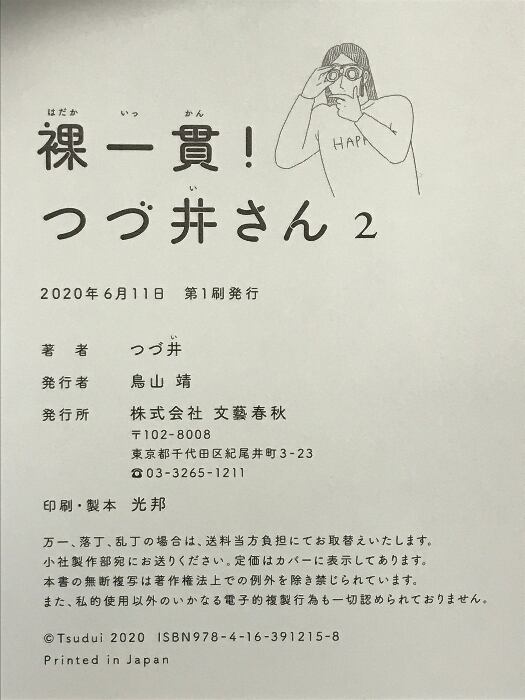 はだか いっ かん
裸一貫!
HAPP
い
つづ井さん 2
2020年6月11日 第1刷発行
い
著 者 つづ井
発行者 鳥山 靖
発行所 株式会社 文藝春秋
〒102-8008
東京都千代田区紀尾井町3-23
☎03-3265-1211
印刷・製本 光邦
万一、落丁、乱丁の場合は、送料当方負担にてお取替えいたします。
小社製作部宛にお送りください。定価はカバーに表示してあります。
本書の無断複写は著作権法上での例外を除き禁じられています。
また、私的使用以外のいかなる電子的複製行為も一切認められておりません。
©Tsudui 2020 ISBN978-4-16-391215-8
Printed in Japan